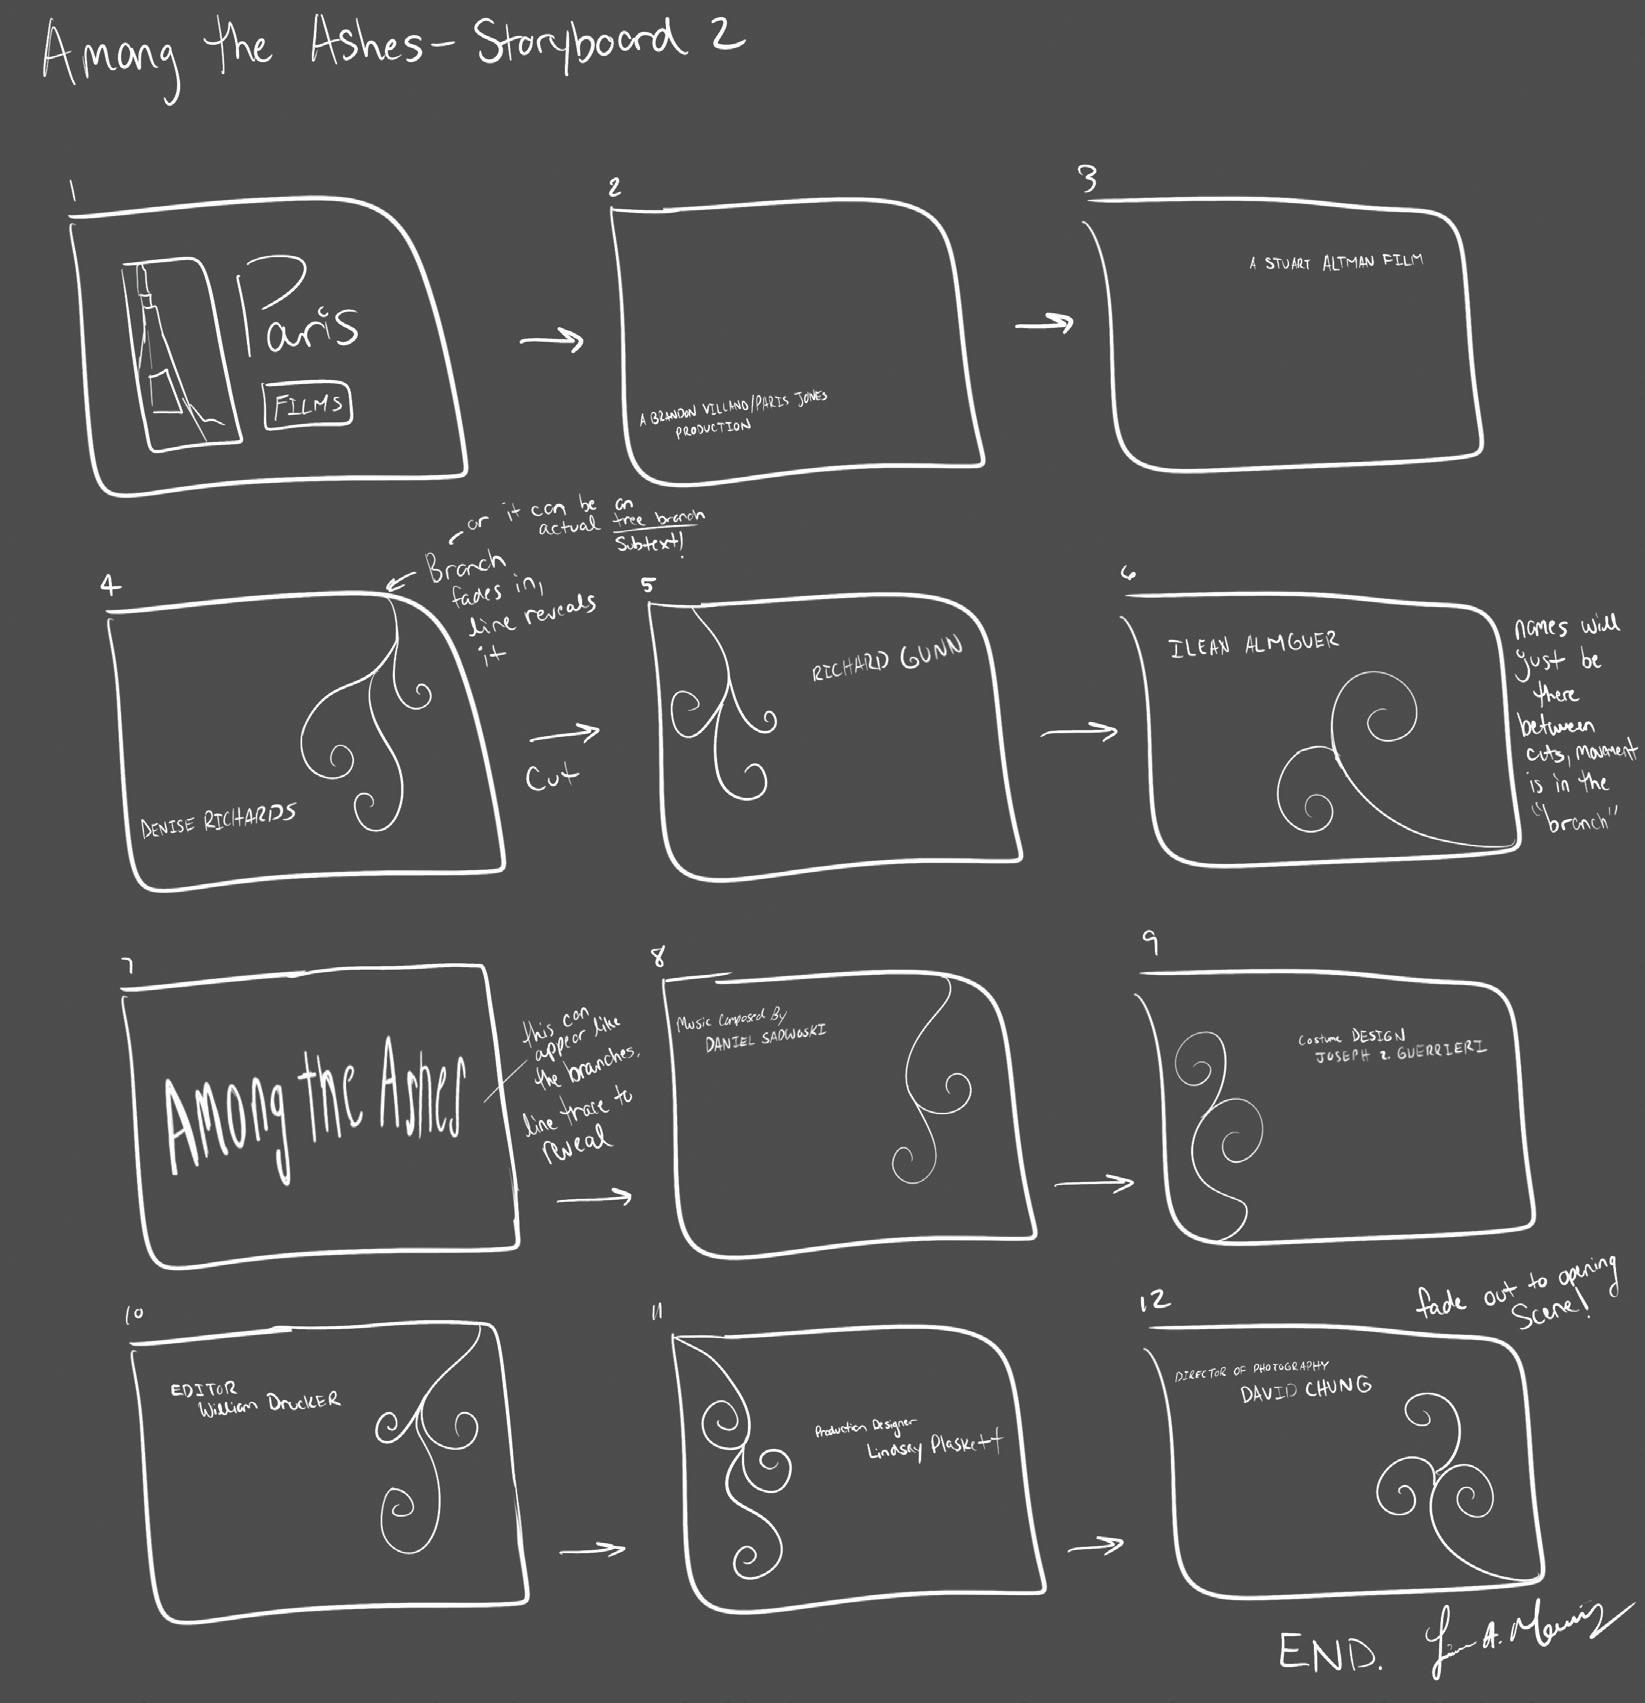 Among the Ashes - Storyboard 2
1
Paris
FILMS
2
A BRANDON VILLANO/PARIS JONES
PRODUCTION
3
A STUART ALTMAN FILM
4
DENISE RICHARDS
or it can be an
actual tree branch
Subtext!
Branch
fades in,
line reveals
it
Cut
5
RICHARD GUNN
6
ILEAN ALMGUER
names will
just be
there
between
cuts, movment
is in the
"branch"
7
Among the Ashes
this can
appear like
the branches.
line trace to
reveal
8
Music Composed By
DANIEL SADWOSKI
9
Costume DESIGN
JOSEPH Z. GUERRIERI
10
EDITOR
William DruckER
11
Production Designer
Lindsay Plaskett
12
fade out to opening
Scene!
DIRECTOR OF PHOTOGRAPHY
DAVID CHUNG
END.